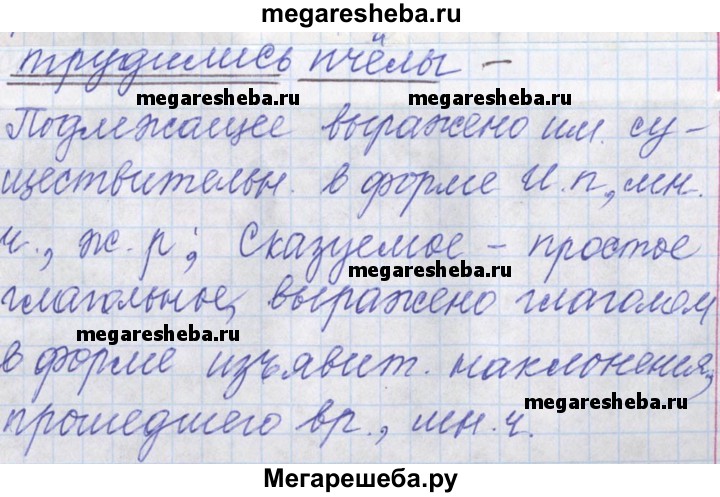 megaresheba.ru
трудились пчёлы –
megaresheba.ru megaresheba.ru
Подлежащее выражено им. су-
ществительн. в форме И.п., мн.
ч., ж.р; Сказуемое – простое
megaresheba.ru
глагольные, выражено глаголом
megaresheba.ru
в форме изъявит. наклонения,
megaresheba.ru
прошедшего вр., мн.ч.
Мегарешеба.ру